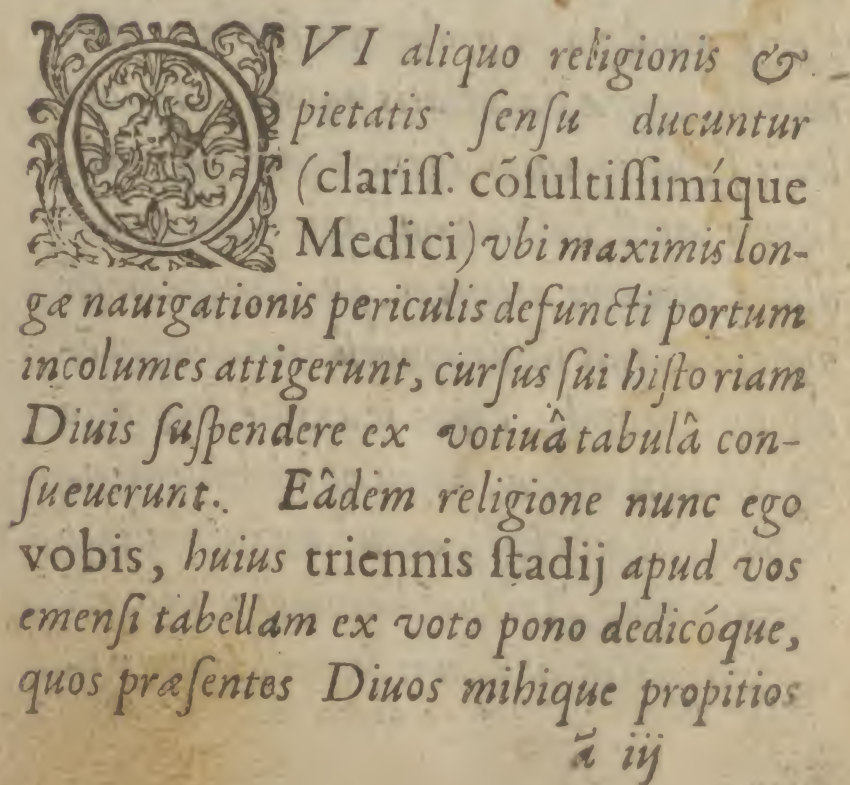 QVI aliquo religionis &
pietatis ſenſu ducuntur
(clariſſ. cõſultiſſimíque
Medici) vbi maximis lon-
gæ nauigationis periculis defuncti portum
incolumes attigerunt, curſus ſui hiſtoriam
Diuis ſuſpendere ex votiuâ tabulâ con-
ſueuerunt. Eâdem religione nunc ego
vobis, huius triennis ſtadij apud vos
emenſi tabellam ex voto pono dedicóque,
quos præſentes Diuos mihique propitios
ã iij